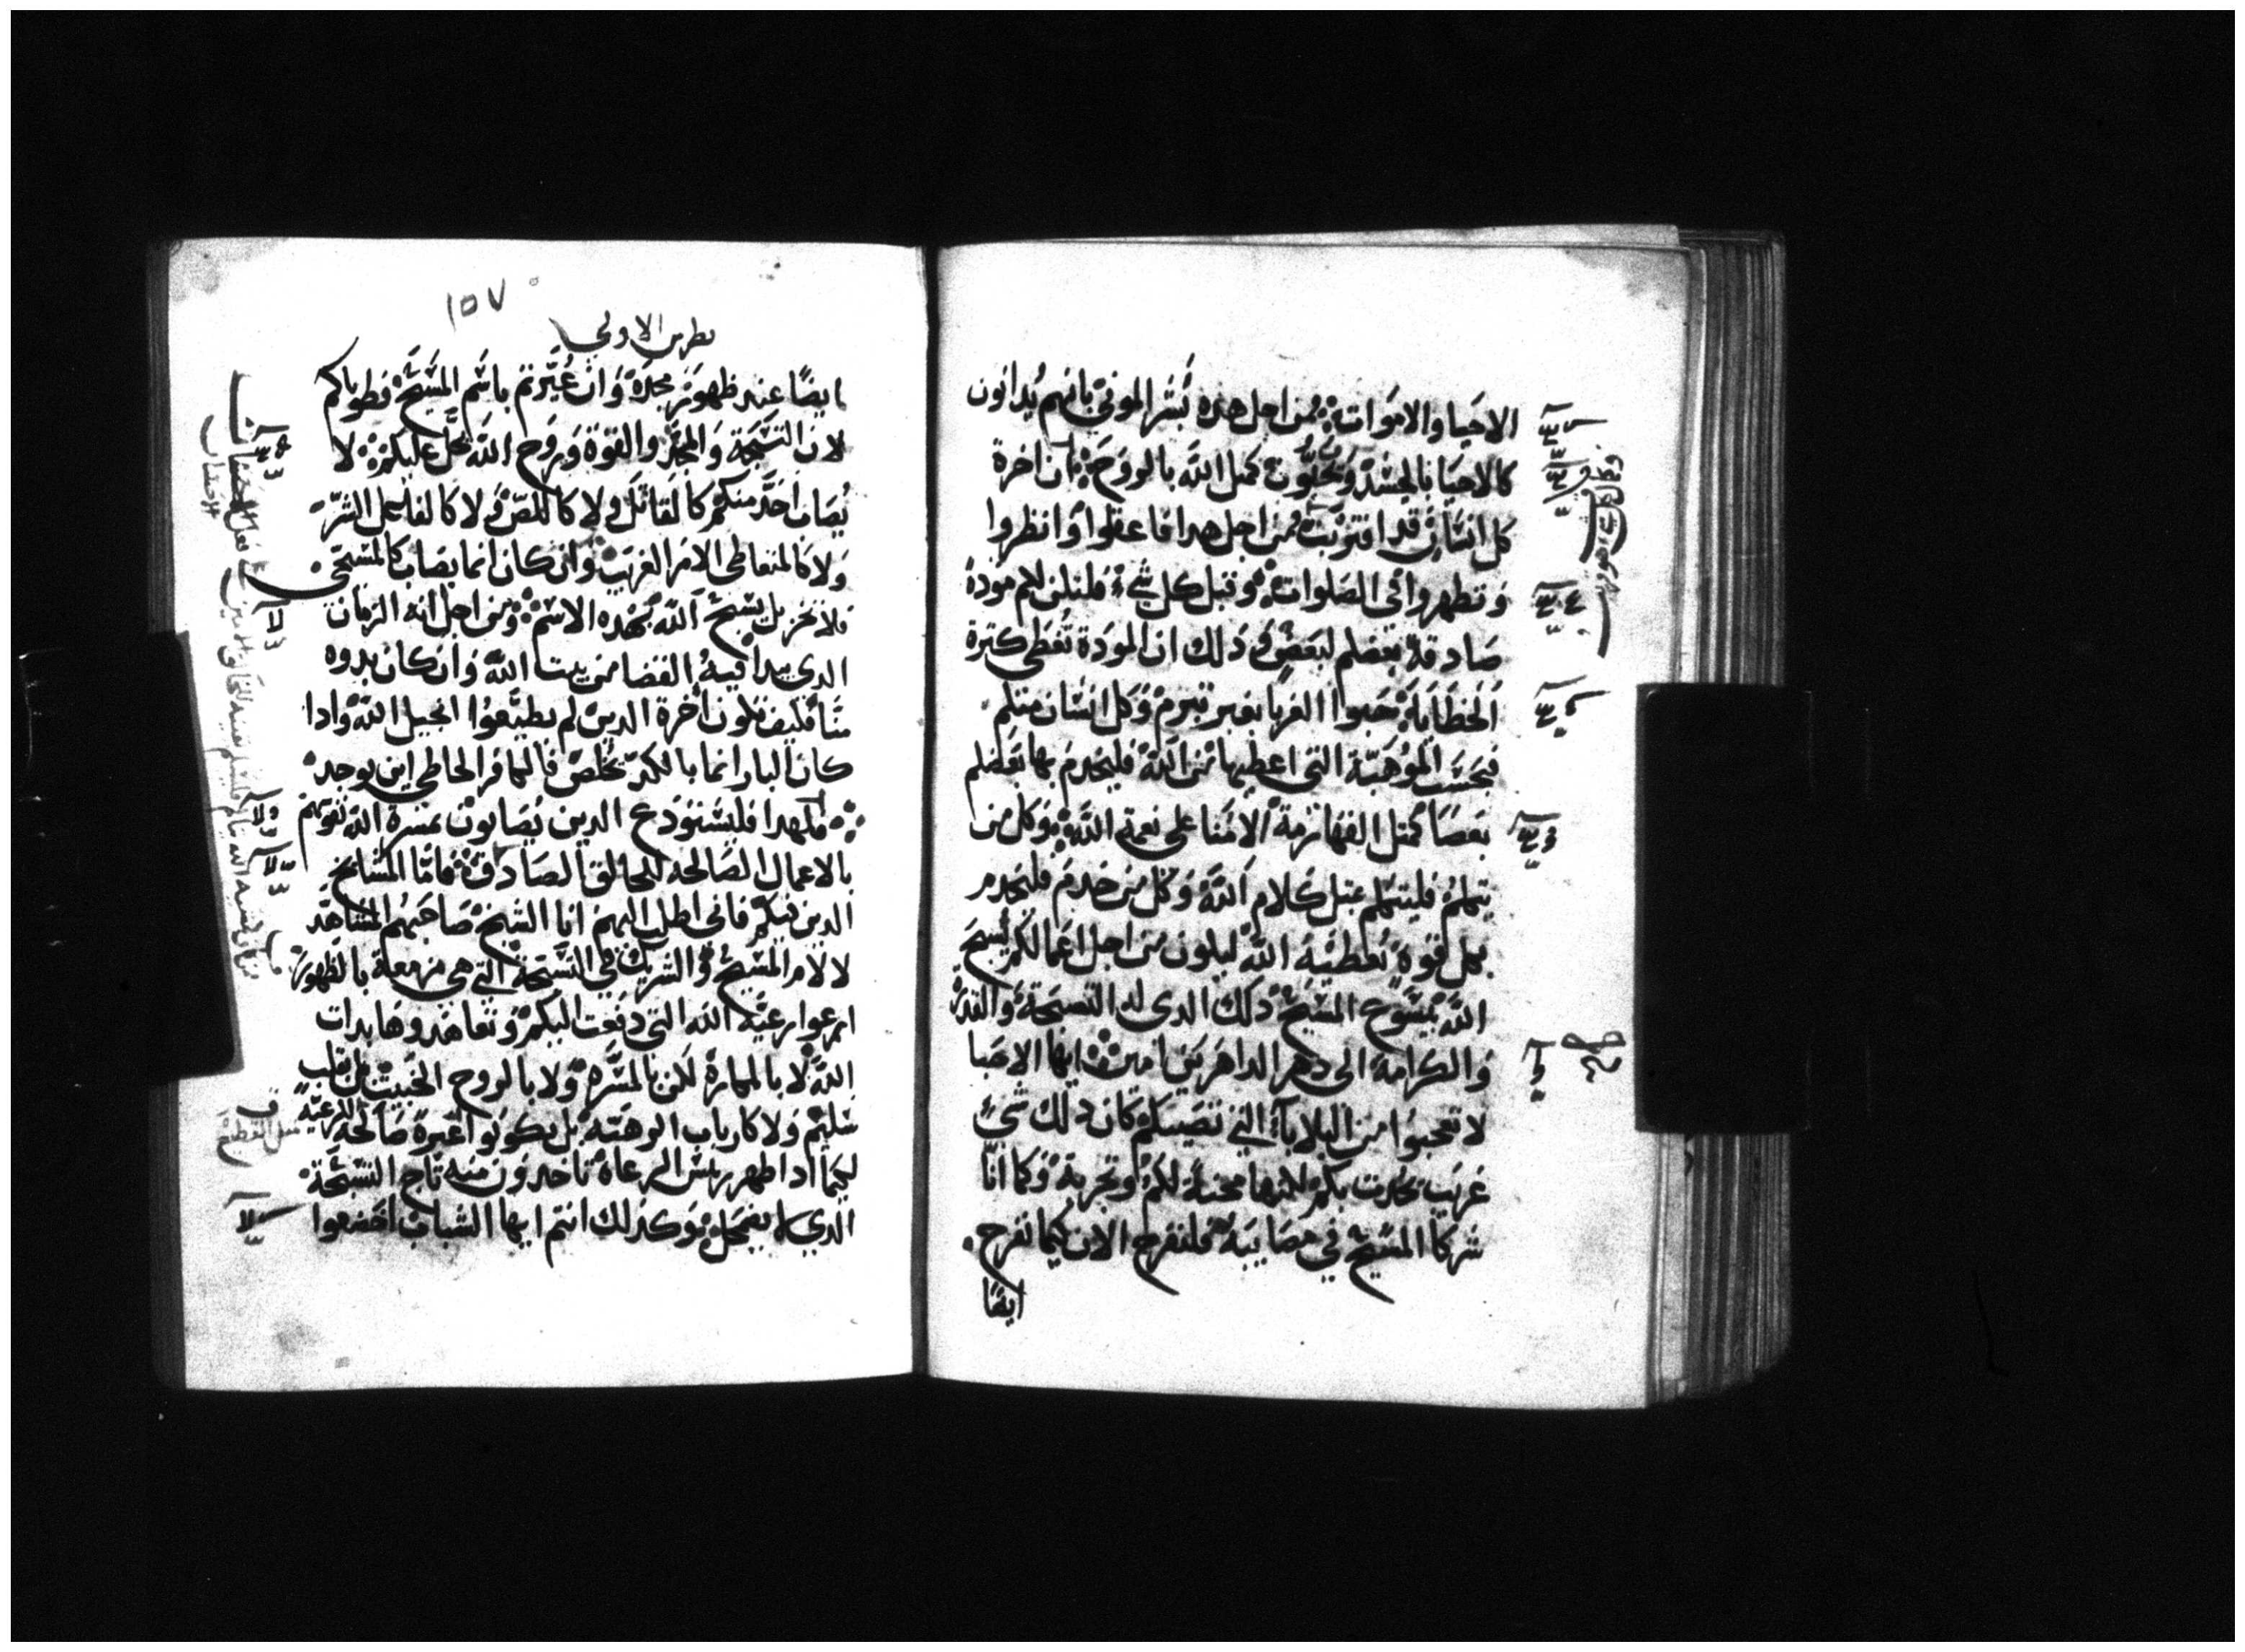 الاحيا والاموات ومن اجل هذه بُشر الموتي بانهم يُدانون
كالاحيا بالجسد وَيحيَون كمثل الله بالروح ان اخرة
كل انسان قد اقتربت فمن اجل هدا فاعقلوا وانظروا
وتطهروا في الصلوات وقبل كل شيء فلتكن لكم مودة
صادقة بعضكم لبعض وذلك ان المودة تغطي كترة
الخطايا حبوا الغربا بغير تبرم وكل انسان منكم
فبحسب الموهبة التي اعطيها من الله فليخدم بها بعضكم
بعضا كمتل القهارمة الامنا علي نعمة الله وكل من
يتكلم فليتكلم بمتل كلام الله وكل من خدم فليخدم
بكل قوة يُعطيه الله ليكون من اجل اعمالكم يُسبح
الله بيسوع المسيح ذلك الدي له التسبحة والقدرة
والكرامة الي دهر الداهرين امين ايها الاحبا
لا تعجبوا من البلايا التي تصيبكم كان دلك شيء
غريب يحدث بكم لكنها محنة لكم وتجربة وكما انا
شركا المسيح في مصايبه فلنفرح الان كيما نفرح
ايضًا
١٥٧
بطرس الاولي
ايضًا عند ظهور مجده وان عُيرتم باسم المسيح فطوباكم
لان التسبحة والمجد والقوة وروح الله تحل عليكم لا
يُصاب احد منكم كالقاتل ولا كاللص ولا كالفاعل الشر
ولا كالمتعاطي الامر الغريب وان كان انما يصاب كالمسيحي
فلا يخز بل يسبح الله بهذه الاسم ومن اجل انه الزمان
الدي يبدا فيه القضا من بيت الله وان كان بدوه
منا فكيف تكون اخرة الدين لم يطيعوا انجيل الله وادا
كان البار انما بالكد يخلص فالكافر الخاطي اين يوجد
فلهدا فليستودع الدين يُصابون بمسرة الله نفوسهم
بالاعمال الصالحه للخالق الصادق فاما المشايخ
الدين فيكم فاني اطلب اليهم انا الشيخ صاحبهم الشاهد
لالام المسيح والشريك في التسبحة التي هي مزمعة بالظهور
ارعوا رعية الله التي دفعت اليكم وتعاهدوها بدات
الله لا بالمكاره لكن بالمسره ولا بالروح الخبيث بل بقلب
سليم ولا كارباب الرعيه بل يكونوا عبرة صالحه للرعيه
ليكما ادا ظهر ريس الرعاة تاخدون منه تاج التسبحة
الدي لا يضمحل وكذلك انتم ايها الشباب اخضعوا